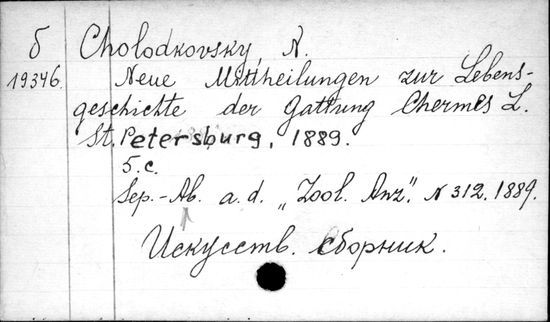 б Cholodkovsky, N.
19346. Neue Mittheilungen zur Lebens-
geschichte der Gattung Chermes L.
St. Petersburg, 1889.
5.c.
Sep.-Ab. a.d. „Zool. Anz". N 312. 1889.
Искусств. сборник.